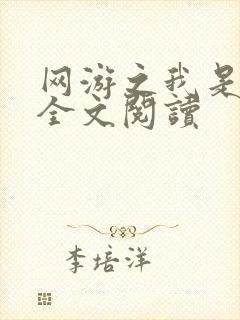 网游之我是
全文閱讀
李培洋